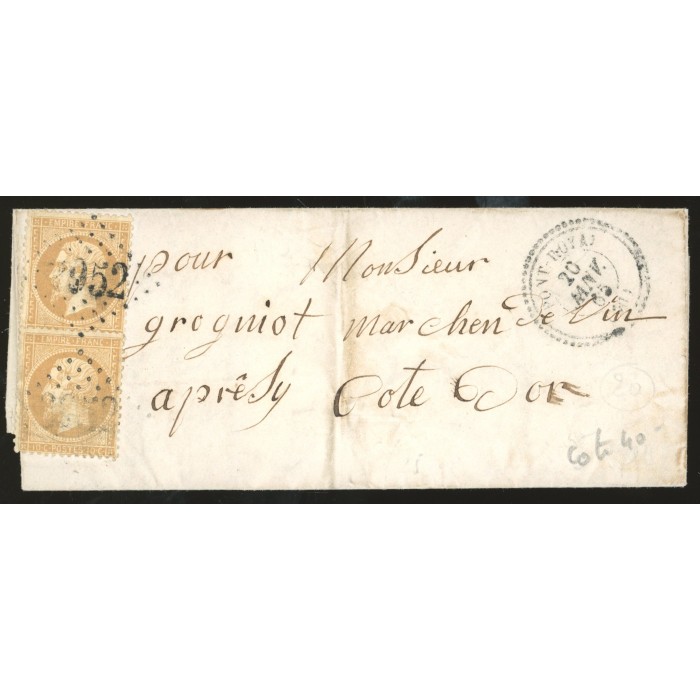 EMPIRE FRANC
952
EMPIRE FRANC
POSTES
pour Monsieur
grogniot marchen de Vin
aprêsy Cote Dor
PONT-ROYAL
20
JANV.
90
Cote 40-